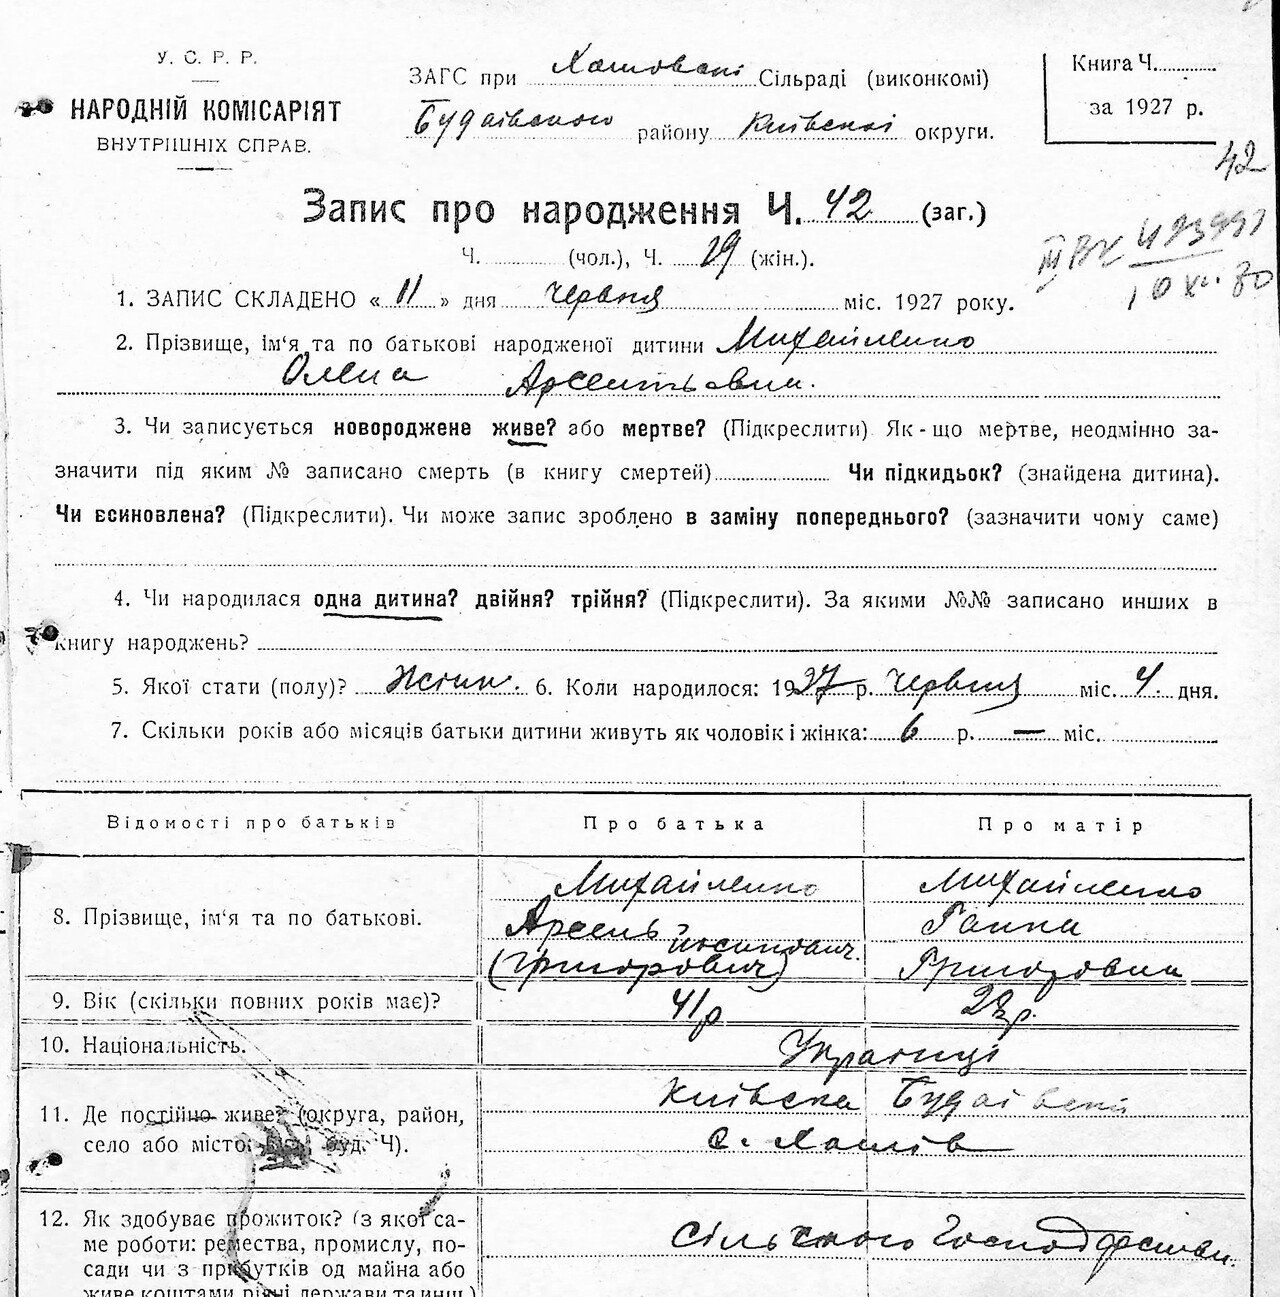 У. С. Р. Р.
НАРОДНІЙ КОМІСАРІЯТ
ВНУТРІШНІХ СПРАВ.
ЗАГС при Хотовскі Сільраді (виконкомі)
Будаївського району Київської округи.
Книга Ч.
за 1927 р.
42
Запис про народження Ч. 42 (заг.)
Ч. (чол.), Ч. 19 (жін.).
1. ЗАПИС СКЛАДЕНО « 11 » дня червня міс. 1927 року.
2. Прізвище, ім'я та по батькові народженої дитини Михайленко
Олена Арсентьевна.
3. Чи записується новороджене живе? або мертве? (Підкреслити) Як-що мертве, неодмінно за-
значити під яким № записано смерть (в книгу смертей) Чи підкидьок? (знайдена дитина).
Чи всиновлена? (Підкреслити). Чи може запис зроблено в заміну попереднього? (зазначити чому саме)
4. Чи народилася одна дитина? двійня? трійня? (Підкреслити). За якими №№ записано инших в
книгу народжень?
5. Якої стати (полу)? Жінк. 6. Коли народилося: 1927 р. червня міс. 4. дня.
7. Скільки років або місяців батьки дитини живуть як чоловік і жінка: 6 р. — міс.
Відомості про батьків Про батька Про матір
8. Прізвище, ім'я та по батькові.
Михайленко Михайленко
Арсень Йосипович. Ганна
(Григорович) Григоровна
9. Вік (скільки повних років має)? 41 р 28 р.
10. Національність. Українці
11. Де постійно живе? (округа, район,
село або місто, буд. Ч).
Київська Будаївський
с. Хотів
12. Як здобуває прожиток? (з якої са-
ме роботи: ремества, промислу, по-
сади чи з прибутків од майна або
живе коштами рідні держави та инш.)
Сільського господарства.